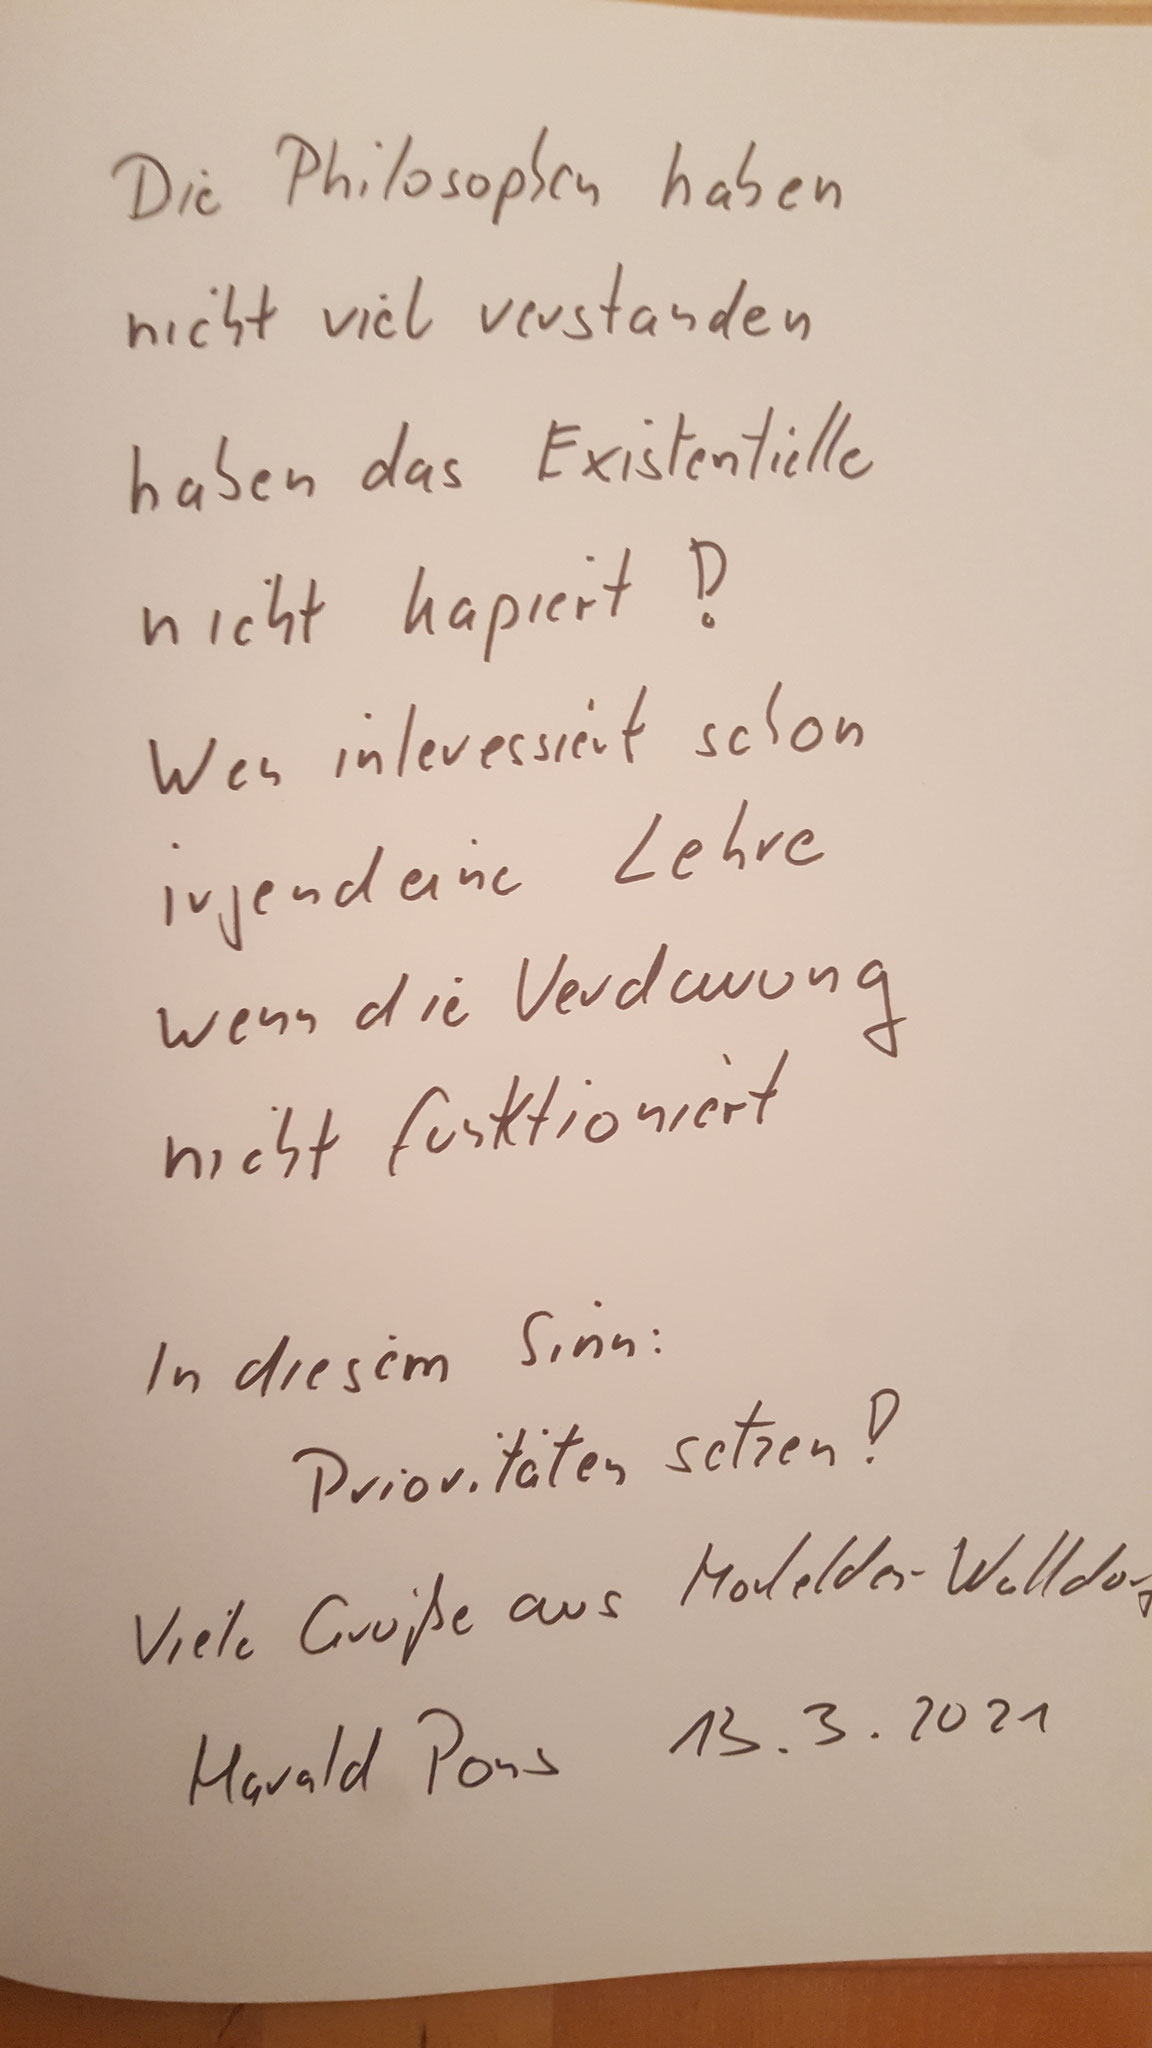 Die Philosophen haben
nicht viel verstanden
haben das Existentielle
nicht kapiert!
Wen interessiert schon
irgendeine Lehre
wenn die Verdauung
nicht funktioniert
In diesem Sinn:
Prioritäten setzen!
Viele Grüße aus Mörfelden-Walldorf
Harald Pons 13.3.2021